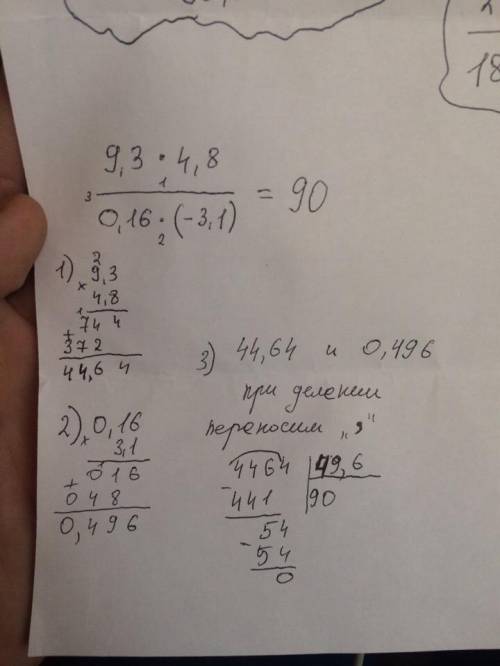 18
9,3 · 4,8
1
3
0,16 · (-3,1)
2
= 90
1) 2
× 9,3
4,8
1
+ 74 4
372
44,6 4
2) × 0,16
3,1
+ 016
048
0,496
3) 44,64 и 0,496
при делении
переносим „ , “
4464 | 49,6
- 441 | 90
54
- 54
0